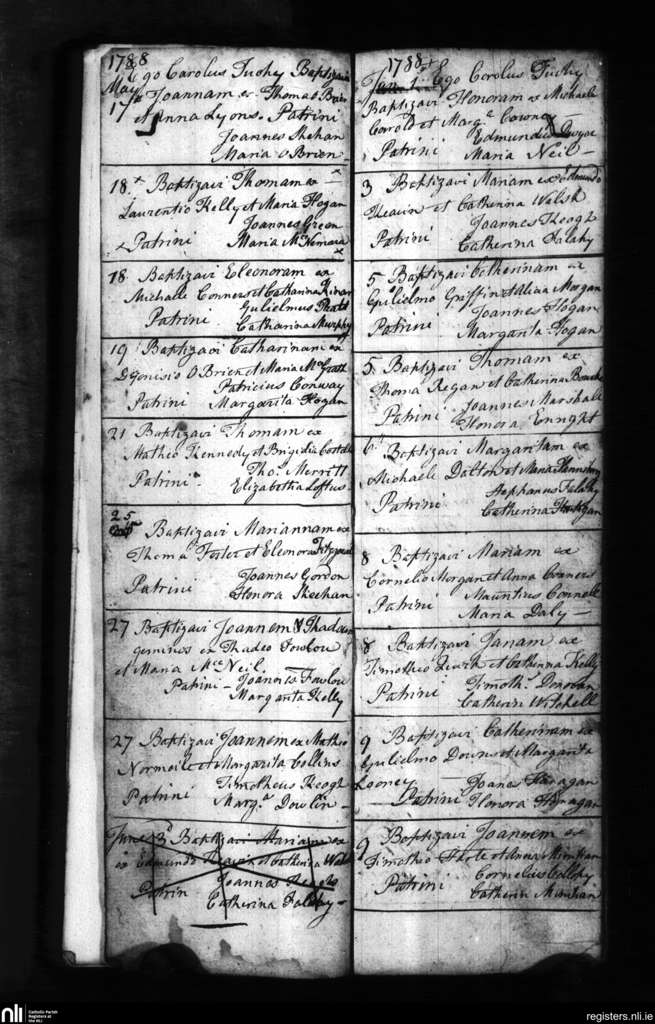 1788
May Ego Carolus Tuohy Baptizavi
17th Joannam ex Thoma O Brien
et Anna Lyons. Patrini
Joannes Shehan
Maria O Brien
18 Baptizavi Thomam ex
Laurentio Kelly et Maria Hogan
Joannes Green
Patrini Maria McNemara
18 Baptizavi Eleonoram ex
Michaele Conners et Catharina
Gulielmus
Patrini Catharina Murphy
19 Baptizavi Catharinam ex
Dyonisio O Brien et Maria McGrath
Patricius Conway
Patrini Margarita Hogan
21 Baptizavi Thomam ex
Matheo Kennedy et Brigidia
Tho. Merrett
Patrini Elizabetha Loftus
25
Baptizavi Mariannam ex
Thoma Foster et Eleonora Fitzgerald
Joannes Gordon
Patrini Honora Keehan
27 Baptizavi Joannem & Thadeum
geminos ex Thadeo Fowlou
et Maria Mcc Neil.
Patrini Joannes Fowlou
Margarita Kelly
27 Baptizavi Joannem ex Matheo
Normoile et Margarita Collins
Timotheus Keogh
Patrini Marg.a Dowlin
June 3d Baptizavi Mariam ex
ex Edmundo Heavin et Catherina Walsh
Patrin Joannes Keogh
Catherina Falahy
1788
June 1 Ego Carolus Tuohy
Baptizavi Honoram ex Michaele
et Marg.a
Edmundus
Patrini Maria Neil
3 Baptizavi Mariam ex Edmundo
Heavin et Catherina Walsh
Joannes Keogh
Patrini Catherina Falahy
5 Baptizavi Catherinam ex
Gulielmo Griffin et Alicia Morgan
Joannes Hogan
Patrini Margarita Hogan
5 Baptizavi Thomam ex
Thoma Regan et Catherina Bourke
Joannes Marshall
Patrini Honora Enright
6 Baptizavi Margaritam ex
Michaele Dalton et Maria
Stephanus Falahy
Patrini Catherina
8 Baptizavi Mariam ex
Cornelio Morgan et Anna Conners
Mauritius Connell
Patrini Maria Daly
8 Baptizavi Janam ex
Timotheo et Catherina Kelly
Timoth. Donovan
Patrini Catherin Mitchell
9 Baptizavi Catherinam ex
Gulielmo Down et Margarita
Looney Joanes Flanagan
Patrini Honora Flanagan
9 Baptizavi Joannem ex
Timotheo et Anna Minihan
Cornelius
Patrini Catherin Minihan
nli
Catholic Parish
Registers at
the NLI
registers.nli.ie